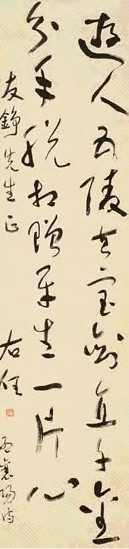 遊人五陵去寶劍直千金
分手脫相贈平生一片心
友錚先生正
右任
孟襄陽詩